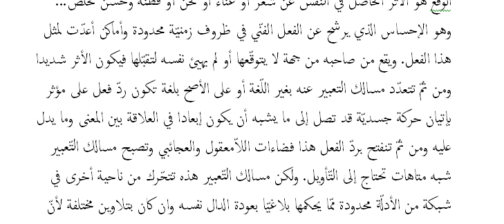 الوقع هو الأثر الحاصل في النفس عن شعر أو غناء أو لحن أو فطنة وحسن تخلّص...
وهو الإحساس الذي يرشح عن الفعل الفنّي في ظروف زمنيّة محدودة وأماكن أعدّت لمثل
هذا الفعل. ويقع من صاحبه من جهة لا يتوقّعها أو لم يهيئ نفسه لتقبّلها فيكون الأثر شديدا
ومن ثمّ تتعدّد مسالك التعبير عنه بغير اللّغة أو على الأصحّ بلغة تكون ردّ فعل على مؤثر
بإتيان حركة جسديّة قد تصل إلى ما يشبه أن يكون إبعادا في العلاقة بين المعنى وما يدل
عليه ومن ثمّ تنفتح بردّ الفعل هذا فضاءات اللاّمعقول والعجائبي وتصبح مسالك التّعبير
شبه متاهات تحتاج إلى التّأويل. ولكن مسالك التّعبير هذه تتحرّك من ناحية أخرى في
شبكة من الأدلّة محدودة ممّا يحكمها بلاغيّا بعودة الدال نفسه وان كان بتلاوين مختلفة لأنّ